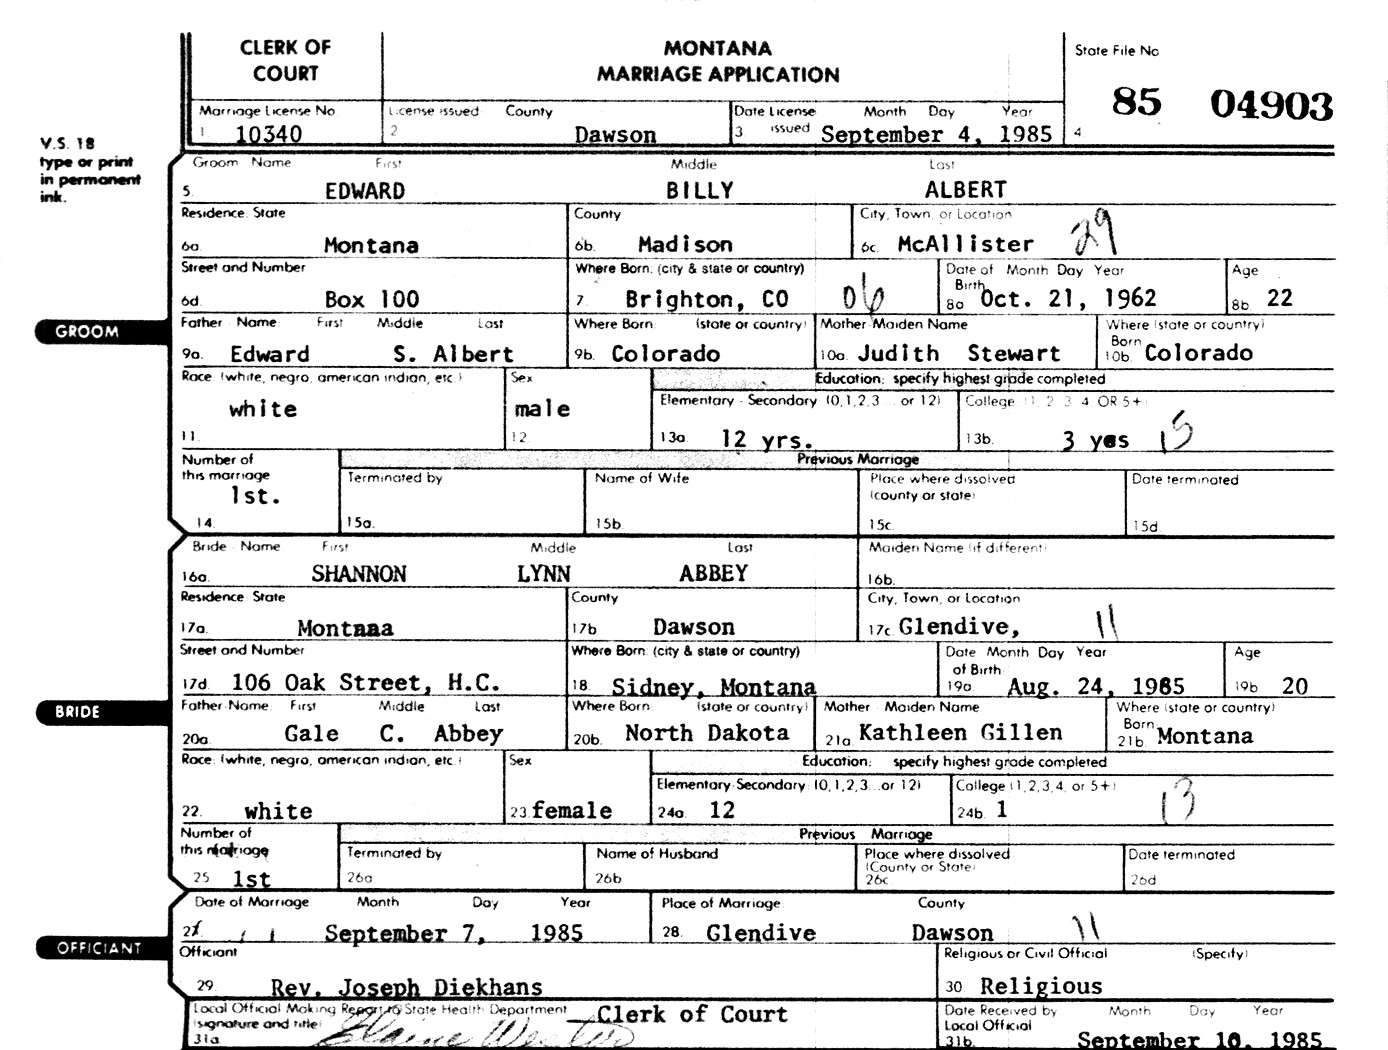 CLERK OF COURT
MONTANA
MARRIAGE APPLICATION
State File No
85 04903
4
Marriage License No
1 10340
License issued County
2 Dawson
Date License issued Month Day Year
3. September 4, 1985
V.S. 18
type or print
in permanent
ink.
GROOM
Groom Name First Middle Last
5. EDWARD BILLY ALBERT
Residence: State County City, Town, or Location
6a. Montana 6b. Madison 6c. McAllister 29
Street and Number Where Born: (city & state or country) Date of Birth Month Day Year Age
6d. Box 100 7. Brighton, CO 06 8a Oct. 21, 1962 8b. 22
Father Name: First Middle Last Where Born: (state or country) Mother Maiden Name Where Born (state or country)
9a. Edward S. Albert 9b. Colorado 10a. Judith Stewart 10b. Colorado
Race: (white, negro, american indian, etc.) Sex Education: specify highest grade completed
Elementary - Secondary (0,1,2,3 ... or 12) College (1 2 3 4 OR 5+)
11. white 12. male 13a. 12 yrs. 13b. 3 yes 15
Number of this marriage Previous Marriage
Terminated by Name of Wife Place where dissolved (county or state) Date terminated
14. 1st. 15a. 15b. 15c. 15d
BRIDE
Bride - Name First Middle Last Maiden Name (if different)
16a. SHANNON LYNN ABBEY 16b.
Residence: State County City, Town, or Location
17a. Montnaa 17b Dawson 17c. Glendive, 11
Street and Number Where Born: (city & state or country) Date of Birth Month Day Year Age
17d. 106 Oak Street, H.C. 18. Sidney, Montana 19a. Aug. 24, 1985 19b 20
Father-Name: First Middle Last Where Born (state or country) Mother - Maiden Name Where Born (state or country)
20a. Gale C. Abbey 20b. North Dakota 21a. Kathleen Gillen 21b. Montana
Race: (white, negro, american indian, etc.) Sex Education: specify highest grade completed
Elementary-Secondary (0,1,2,3...or 12) College (1,2,3,4, or 5+)
22. white 23. female 24a. 12 24b. 1 13
Number of this marriage Previous Marriage
Terminated by Name of Husband Place where dissolved (County or State) Date terminated
25 1st 26a 26b. 26c 26d
OFFICIANT
Date of Marriage: Month Day Year Place of Marriage: County
27 September 7, 1985 28. Glendive Dawson 11
Officiant Religious or Civil Official (Specify)
29. Rev. Joseph Diekhans 30. Religious
Local Official Making Report to State Health Department
(signature and title) Clerk of Court
31a Elaine
Date Received by Local Official Month Day Year
31b. September 10, 1985